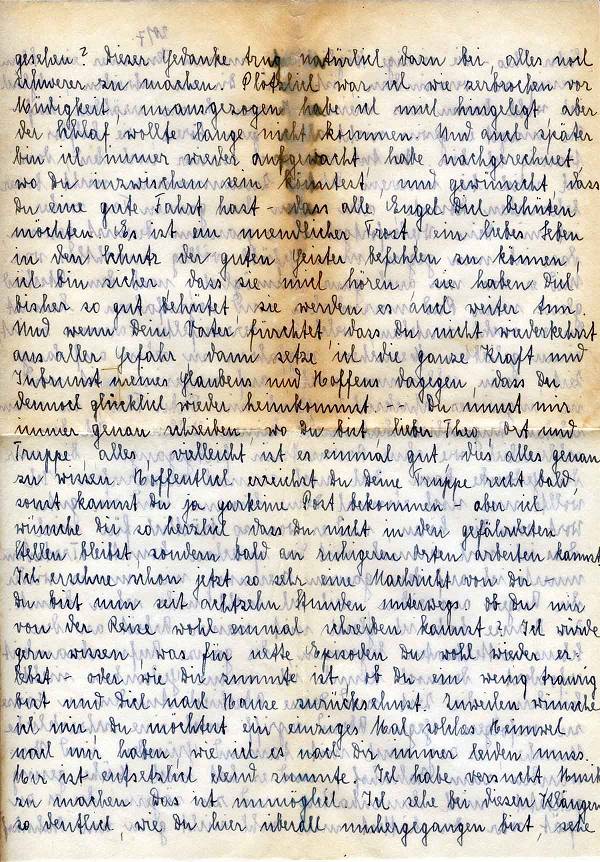 gesehen? Dieser Gedanke trug natürlich dazu bei, alles noch
schwerer zu machen. Plötzlich war ich wie zerbrochen vor
Müdigkeit, unausgezogen habe ich mich hingelegt aber
der Schlaf wollte lange nicht kommen. Und auch später
bin ich immer wieder aufgewacht, habe nachgerechnet,
wo Du inzwischen sein könntest, und gewünscht, dass
Du eine gute Fahrt hast - dass alle Engel Dich behüten
möchten. Es ist ein unendlicher Trost ein liebes Leben
in den Schutz der guten Geister befehlen zu können,
ich bin sicher dass sie mich hören - sie haben Dich
bisher so gut behütet sie werden es auch weiter tun.
Und wenn Dein Vater fürchtet, dass Du nicht wiederkehrst
aus aller Gefahr dann setze ich die ganze Kraft und
Inbrunst meines Glaubens und Hoffens dagegen, dass Du
dennoch glücklich wieder heimkommst. -- Du musst mir
immer genau schreiben wo Du bist, lieber Theo, Ort und
Truppe, alles, vielleicht ist es einmal gut dies alles genau
zu wissen. Hoffentlich erreichst Du Deine Truppe recht bald,
sonst kannst Du ja garkeine Post bekommen - aber ich
wünsche Dir so herzlich, dass Du nicht in den gefährdeten
Stellen bleibst, sondern bald an ruhigeren Orten arbeiten kannst.
Ich ersehne schon jetzt so sehr eine Nachricht von Dir -
Du bist nun seit achtzehn Stunden unterwegs ob Du mir
von der Reise wohl einmal schreiben kannst? Ich würde
gern wissen, was für nette Episoden Du wohl wieder er-
lebst - oder wie Dir zumute ist, ob Du ein wenig traurig
bist und Dich nach Hause zurücksehnst. Zuweilen wünsche
ich mir, Du möchtest ein einziges Mal solches Heimweh
nach mir haben, wie ich es nach Dir immer leiden muss.
Mir ist entsetzlich elend zumute. Ich habe versucht Musik
zu machen - das ist unmöglich. Ich sehe bei diesen Klängen
so deutlich, wie Du hier überall umhergegangen bist, sehe